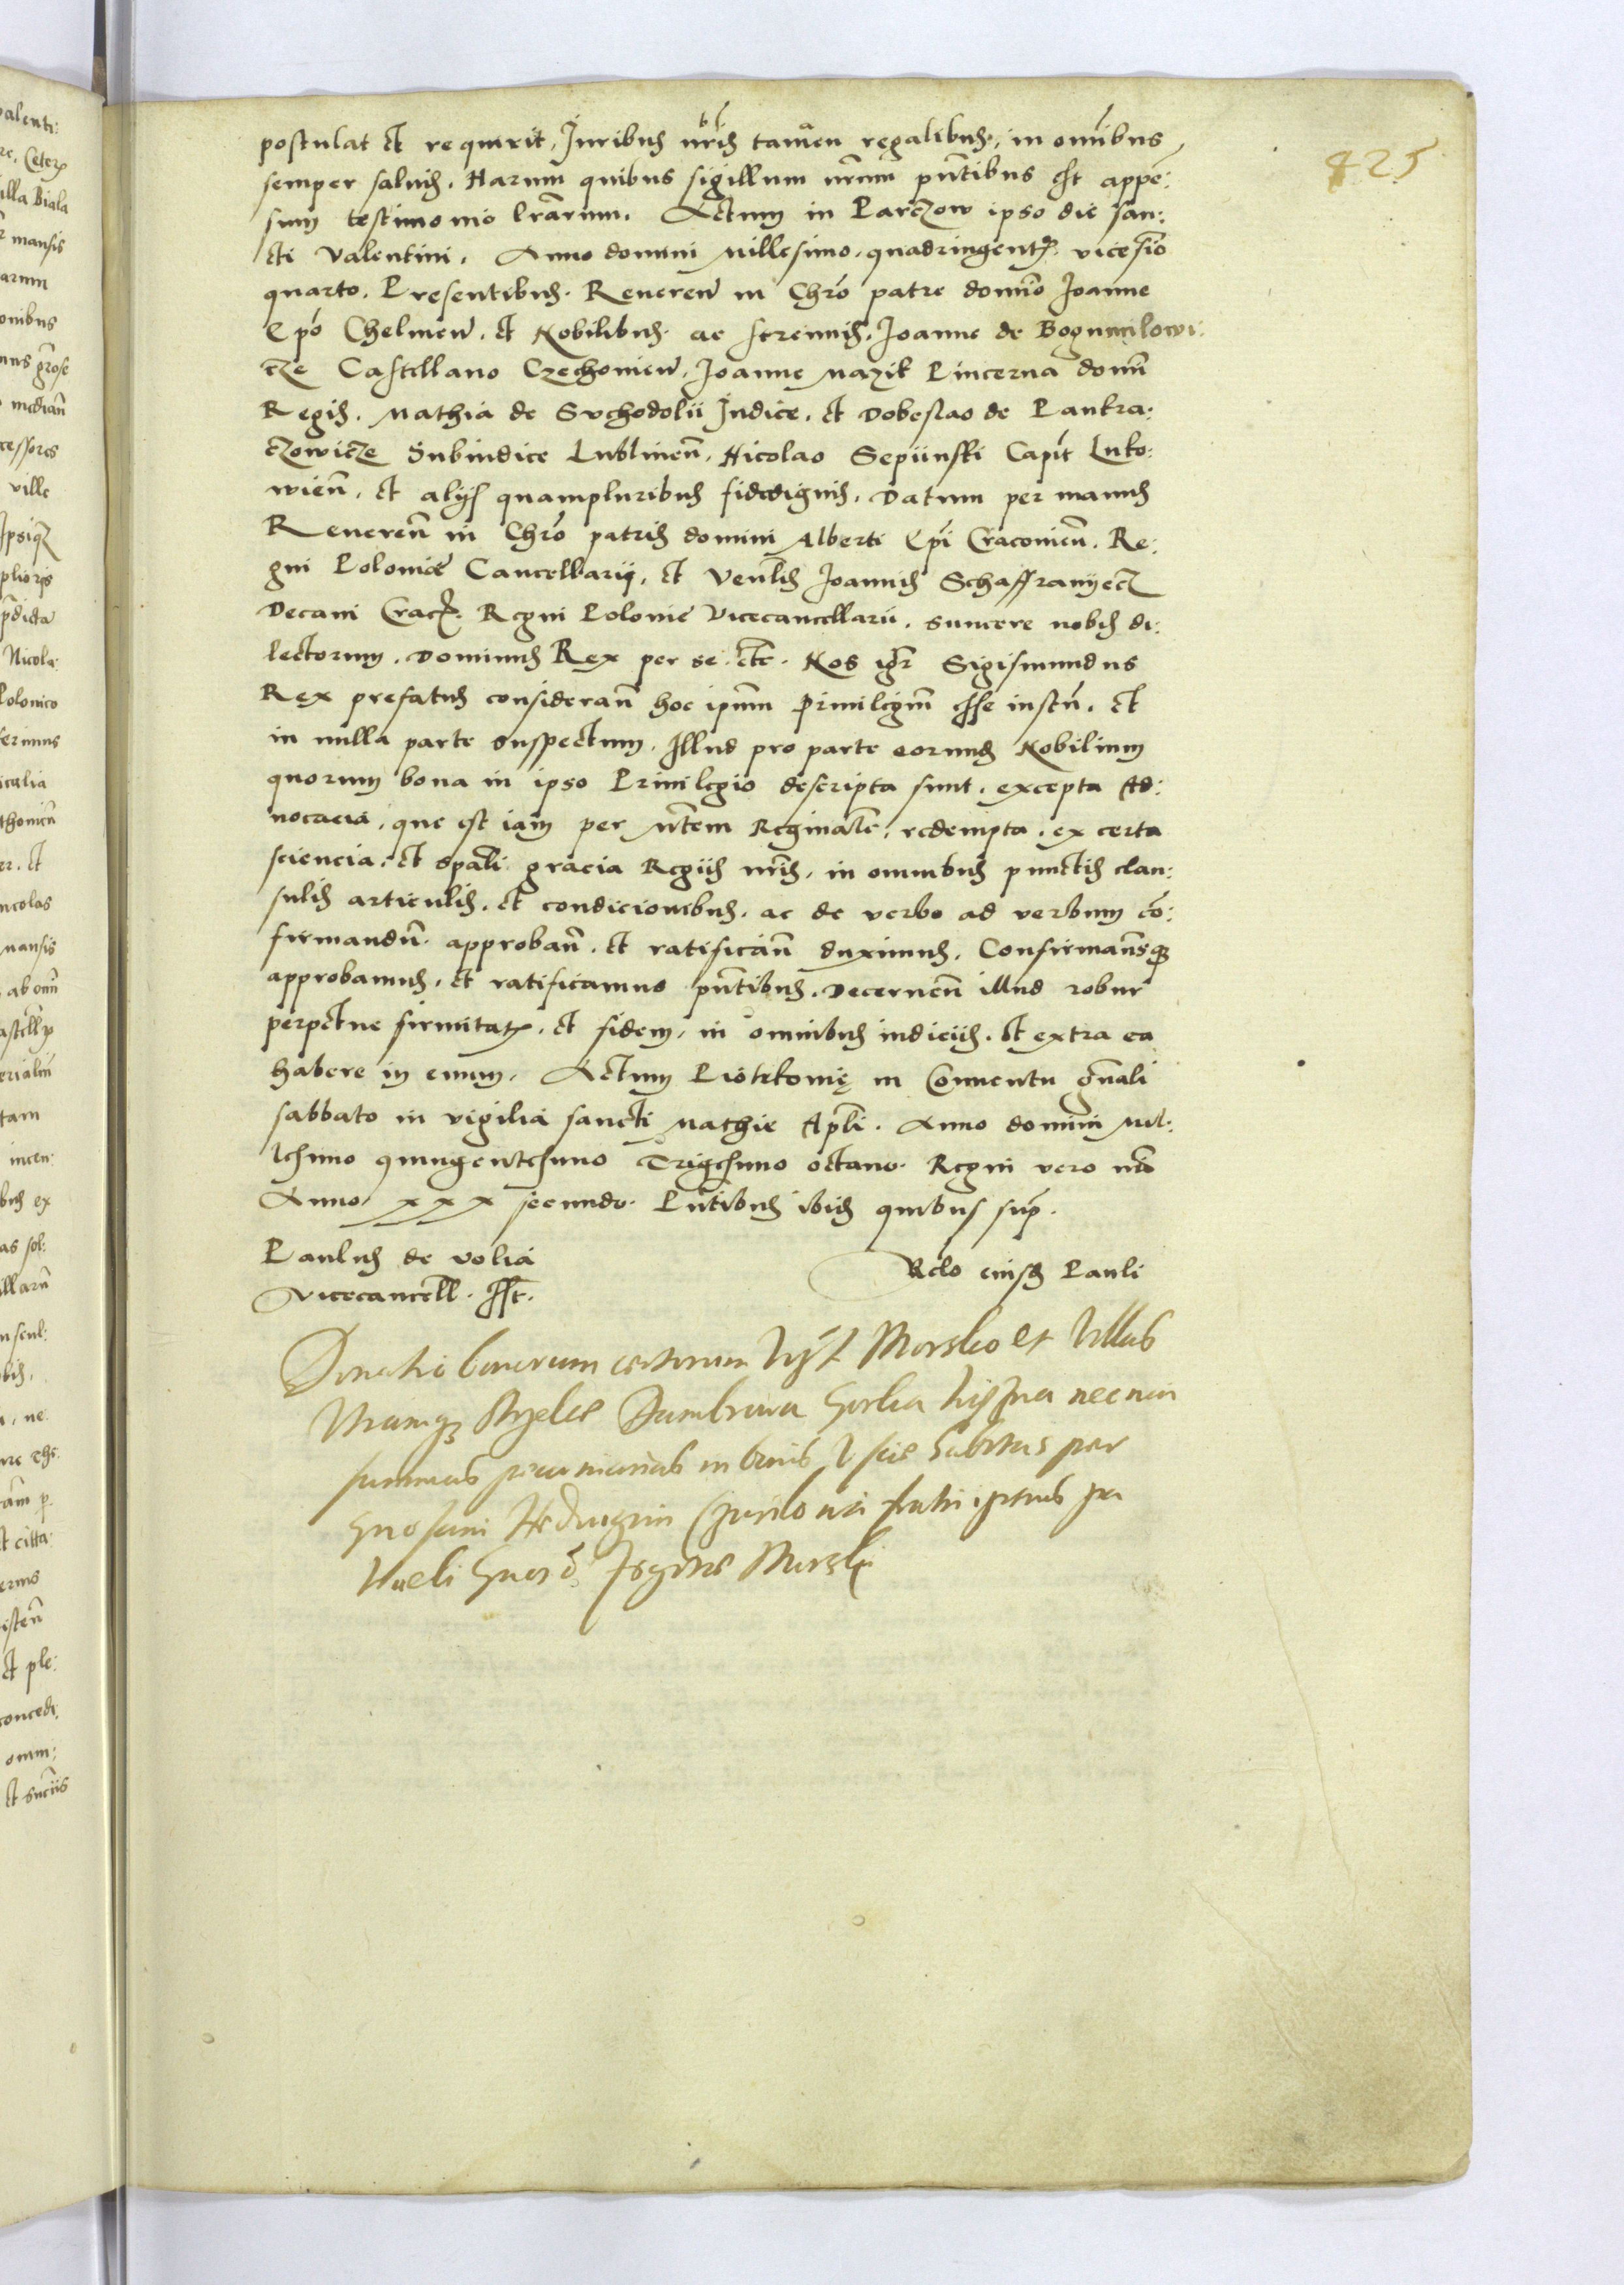 825
postulat et requirit, Juribus nris tamen regalibus, in omibus
semper saluis. Harum quibus sigillum nrum pntibus est appe:
sum testimonio lrarum. Actum in Parczow ipso die san:
cti Valentini. Anno domini Millesimo, quadringente. vicesio
quarto. Presentibus. Reueren in Chro patre domio Joanne
Epo Chelmen. et Nobilibus. ac strenuis, Joanne de Bogumilowi:
cze Castellano Czechonien, Joanne Mazik Pincerna domi
Regis. Mathia de Suchodolii Judice. et Dobeslao de Pankra:
czowicze Subiudice Lublinen, Nicolao Sepiinski Capit Luko:
wien, et alijs quampluribus fidedignis. Datum per manus
Reueren in Chro patris domini Alberti Epi Cracouien. Re:
gni Polonie Cancellarij, et Venlis Joannis Schaffranyecz
Decani Crac. Regni Polonie Vicecancellarii. syncere nobis di:
lectorum. Dominus Rex per se. etc. Nos igr Sigismundus
Rex prefatus consideran hoc ipsum Priuilegium esse iustu. et
in nulla parte suspectum. Illud pro parte eorund Nobilium
quorum bona in ipso Priuilegio descripta sunt. excepta Ad:
uocacia, que est iam per Mtem Reginale. redempta. ex certa
sciencia. et spali gracia Regiis nris, in omnibus punctis clau:
sulis articulis. et condicionibus. ac de verbo ad verbum co:
firmandu approban. et ratifican duximus. Confirmansque
approbamus. et ratificamus pntibus. Decernen illud robur
perpetue firmitatis. et fidem, in omnibus iudiciis. et extra ea
habere in euum. Actum Piotrkouie in Conuentu gnali
sabbato in vigilia sancti Mathie Apli. Anno domini Mil:
lesimo quingentesimo Trigesimo octauo. Regni vero nri
Anno. xxx secundo. Pntibus ibid quibus sup.
Paulus de Volia
Vicecancell. sst.
Relo eiusd Pauli
Donatio bonorum certorum Morsko et Villas
Dambrowa Gorka necnon
summas pecuniarias in bonis per
Morski